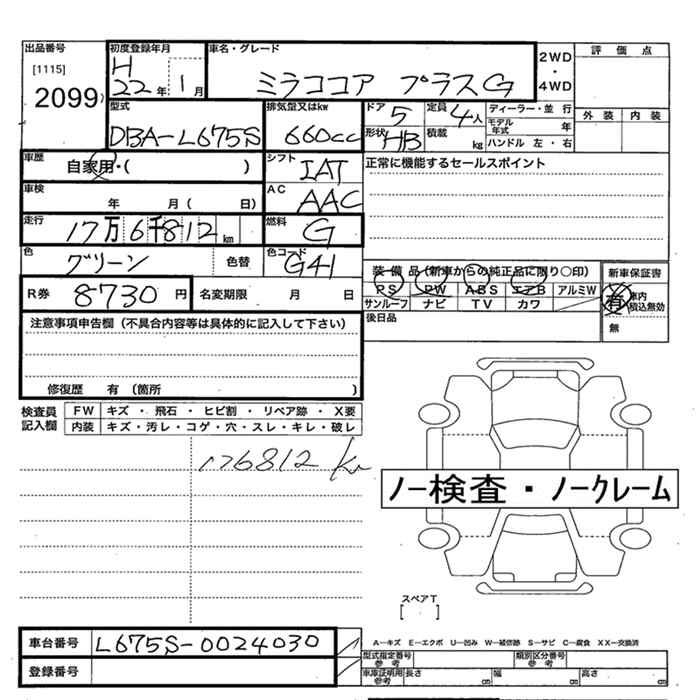 出品番号
[1115]
2099
初度登録年月
H
22年 1月
車名・グレード
ミラココア プラスG
2WD
・
4WD
評価点
外装 内装
型式
DBA-L675S
排気型又はkw
660cc
ドア 5
形状 HB
定員 4人
積載 kg
ディーラー・並行
モデル年式 年
ハンドル 左・右
車歴
自家用・( )
シフト
IAT
正常に機能するセールスポイント
車検
年 月( 日)
AC
AAC
走行
17万6千812km
燃料
G
色
グリーン
色替
色コード
G41
装備品(新車からの純正品に限り○印)
PS PW ABS エアB アルミW
サンルーフ ナビ TV カワ
新車保証書
有 車内積込無効
無
後日品
R券 8730円
名変期限 月 日
注意事項申告欄(不具合内容等は具体的に記入して下さい)
修復歴 有(箇所 )
検査員記入欄
FW キズ・飛石・ヒビ割・リペア跡・X要
内装 キズ・汚レ・コゲ・穴・スレ・キレ・破レ
176812 km
ノー検査・ノークレーム
スペアT
[ ]
車台番号 L675S-0024030
登録番号
A―キズ E―エクボ U―凹み W―補修跡 S―サビ C―腐食 XX―交換済
型式指定番号 参考
類別区分番号 参考
車庫証明用 参考
長さ 幅 高さ